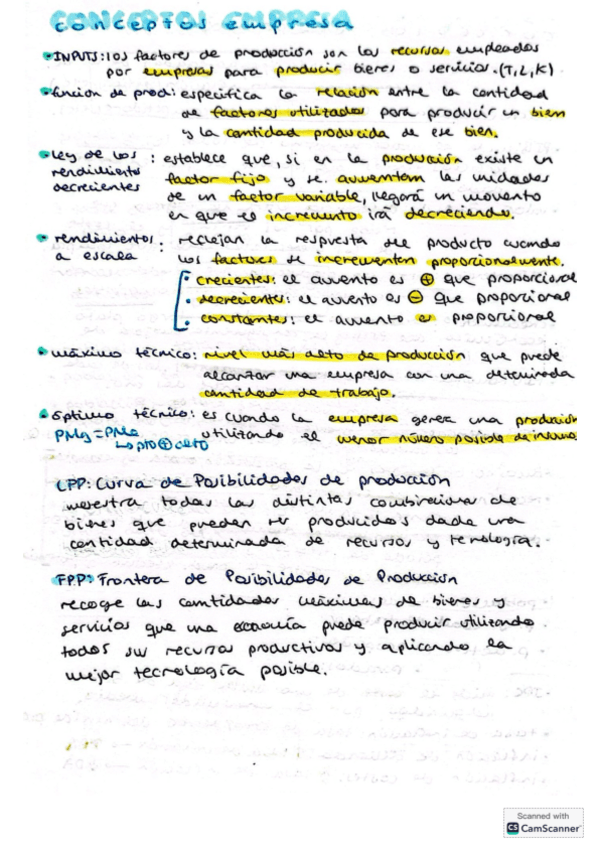 conceptos empresa
• INPUTS: los factores de producción son los recursos empleados
por empresas para producir bienes o servicios. (T, L, K)
• función de prod: especifica la relación entre la cantidad
de factores utilizados para producir un bien
y la cantidad producida de ese bien.
• ley de los rendimientos decrecientes : establece que, si en la producción existe un
factor fijo y se aumentan las unidades
de un factor variable, llegará un momento
en que es incremento irá decreciendo.
• rendimientos a escala : reflejan la respuesta del producto cuando
los factores se incrementen proporcionalmente.
• crecientes: el aumento es ⊕ que proporcional
• decrecientes: el aumento es ⊖ que proporcional
• constantes: el aumento es proporcional
• máximo técnico: nivel más alto de producción que puede
alcanzar una empresa con una determinada
cantidad de trabajo.
• óptimo técnico: es cuando la empresa genera una producción
utilizando el menor número posible de insumos
PMg = PMe
↳ pto ⊕ alto
CPP: Curva de Posibilidades de producción
muestra todas las distintas combinaciones de
bienes que pueden ser producidos dada una
cantidad determinada de recursos y tecnología.
FPP: Frontera de Posibilidades de Producción
recoge las cantidades máximas de bienes y
servicios que una economía puede producir utilizando
todos sus recursos productivos y aplicando la
mejor tecnología posible.
Scanned with
CS CamScanner